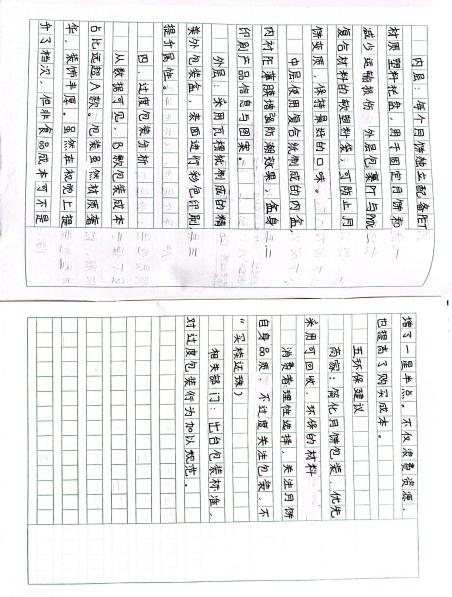 内层：每个月饼独立配备PET
材质塑料托盘，用于固定月饼和
减少运输损伤。外层包裹PT与PVC
复合材料的软塑料袋，可防止月
饼变质，保持最好的口味。
中层使用复合纸制成的内盒，
内衬PE薄膜增强防潮效果，盒身
印刷产品信息与图案。
外层：采用瓦楞纸制成的精
装外包装盒，表面进行彩色印刷
提升属性。
四、过度包装分析
从数据可见，B款包装成本
占比远超A款。包装虽然材质奢
华、装饰丰厚。虽然在视觉上提
升了档次，但非食品成本可不是
增了一星半点。不仅浪费资源，
也提高了购买成本。
五环保建议
商家：简化月饼包装、优先
采用可回收、环保的材料
消费者理性选择，关注月饼
自身品质、不过度关注包装，不
“买椟还珠）
相关部门：出台包装标准，
对过度包装行为加以规范。